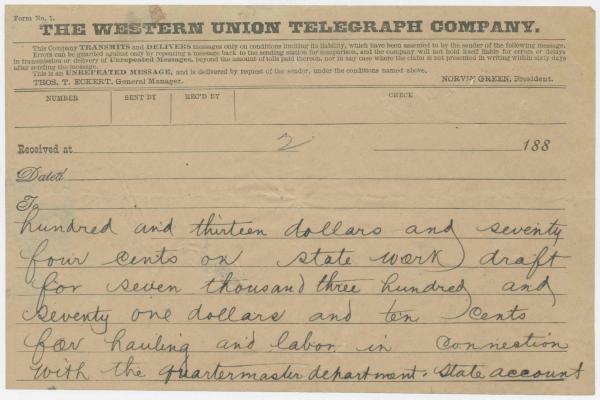 Form No. 1.
THE WESTERN UNION TELEGRAPH COMPANY.
This Company TRANSMITS and DELIVERS messages only on conditions limiting its liability, which have been assented to by the sender of the following message.
Errors can be guarded against only by repeating a message back to the sending station for comparison, and the company will not hold itself liable for errors or delays
in transmission or delivery of Unrepeated Messages, beyond the amount of tolls paid thereon, nor in any case where the claim is not presented in writing within sixty days
after sending the message.
This is an UNREPEATED MESSAGE, and is delivered by request of the sender, under the conditions named above.
THOS. T. ECKERT, General Manager. NORVIN GREEN, President.
NUMBER SENT BY REC'D BY CHECK
Received at 2 188
Dated
To
hundred and thirteen dollars and seventy
four cents on state work) draft
for seven thousand three hundred and
seventy one dollars and ten cents
for hauling and labor in connection
with the quartermaster department. State account